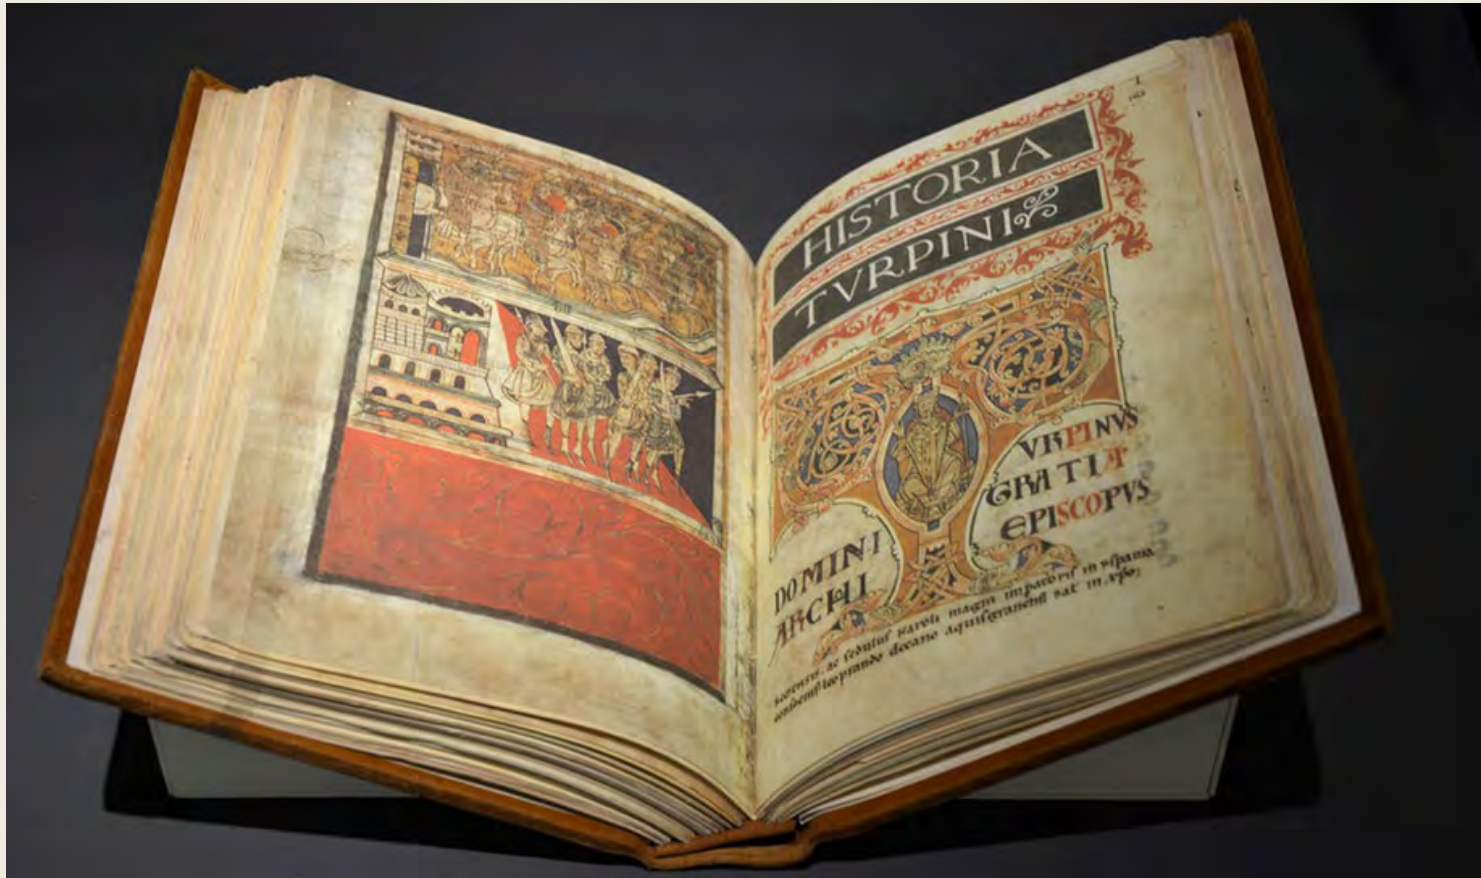 HISTORIA
TVRPINI
TVRPINVS
DOMINI GRATIA
ARCHI EPISCOPVS
ac sedulus karoli magni imperatoris in yspania
leoprando decano aquisgranensi sal in xpo;